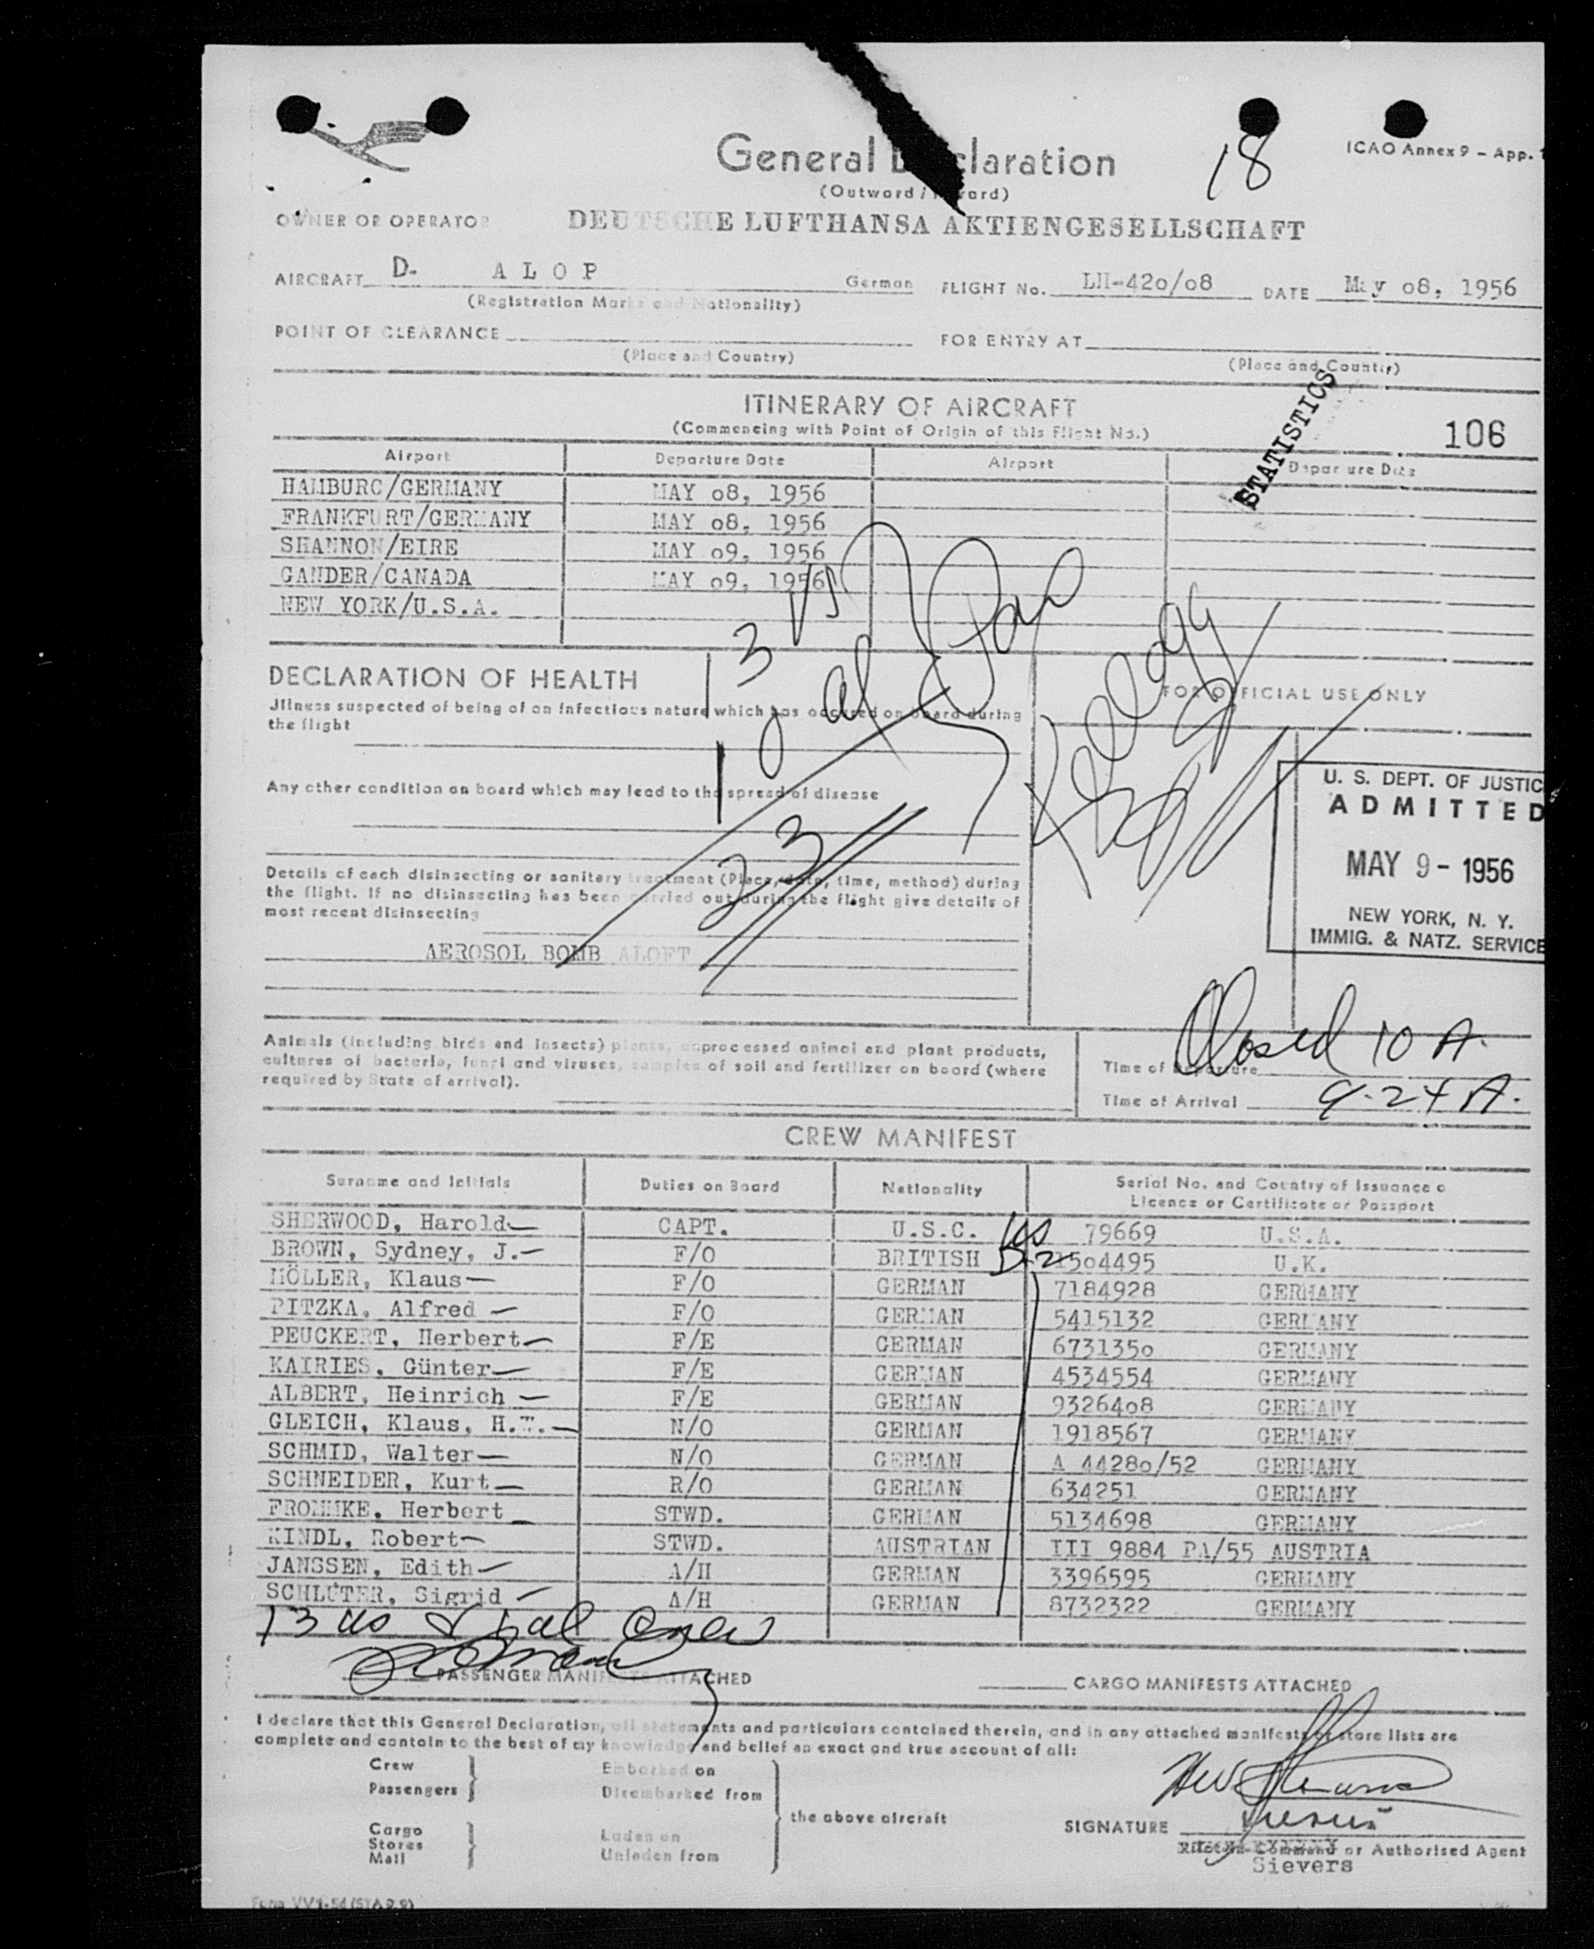 18
ICAO Annex 9 - App. 1
General Declaration
(Outward / Inward)
OWNER OR OPERATOR DEUTSCHE LUFTHANSA AKTIENGESELLSCHAFT
AIRCRAFT D- A L O P German FLIGHT No. LH-42o/o8 DATE May o8, 1956
(Registration Marks and Nationality)
POINT OF CLEARANCE FOR ENTRY AT
(Place and Country) (Place and Country)
STATISTICS
ITINERARY OF AIRCRAFT
(Commencing with Point of Origin of this Flight No.) 106
Airport Departure Date Airport Departure Date
HAMBURG/GERMANY MAY o8, 1956
FRANKFURT/GERMANY MAY o8, 1956
SHANNON/EIRE MAY o9, 1956
GANDER/CANADA MAY o9, 1956
NEW YORK/U.S.A.
13
DECLARATION OF HEALTH
FOR OFFICIAL USE ONLY
Illness suspected of being of an infectious nature which has occured on board during
the flight
Kellogg
Any other condition on board which may lead to the spread of disease
23
U. S. DEPT. OF JUSTIC
ADMITTED
MAY 9 - 1956
NEW YORK, N. Y.
IMMIG. & NATZ. SERVICE
Details of each disinsecting or sanitary treatment (Place, date, time, method) during
the flight. If no disinsecting has been carried out during the flight give details of
most recent disinsecting
AEROSOL BOMB ALOFT
Animals (including birds and insects) plants, unprocessed animal and plant products,
cultures of bacteria, fungi and viruses, samples of soil and fertilizer on board (where
required by State of arrival).
Closed 10 A.
Time of Departure
Time of Arrival 9-24 A.
CREW MANIFEST
Surname and Initials Duties on Board Nationality Serial No. and Country of Issuance o
Licence or Certificate or Passport
SHERWOOD, Harold CAPT. U.S.C. US 79669 U.S.A.
BROWN, Sydney, J. F/O BRITISH D-2 15o4495 U.K.
MÖLLER, Klaus F/O GERMAN 7184928 GERMANY
PITZKA, Alfred F/O GERMAN 5415132 GERMANY
PEUCKERT, Herbert F/E GERMAN 673135o GERMANY
KAIRIES, Günter F/E GERMAN 4534554 GERMANY
ALBERT, Heinrich F/E GERMAN 93264o8 GERMANY
GLEICH, Klaus, H. N/O GERMAN 1918567 GERMANY
SCHMID, Walter N/O GERMAN A 4428o/52 GERMANY
SCHNEIDER, Kurt R/O GERMAN 634251 GERMANY
FROMMKE, Herbert STWD. GERMAN 5134698 GERMANY
KINDL, Robert STWD. AUSTRIAN III 9884 PA/55 AUSTRIA
JANSSEN, Edith A/H GERMAN 3396595 GERMANY
SCHLÜTER, Sigrid A/H GERMAN 8732322 GERMANY
13 us & 1 al crew
PASSENGER MANIFESTS ATTACHED CARGO MANIFESTS ATTACHED
I declare that this General Declaration, all statements and particulars contained therein, and in any attached manifests or store lists are
complete and contain to the best of my knowledge and belief an exact and true account of all:
Crew Embarked on
Passengers Disembarked from
the above aircraft
Cargo
Stores Laden on
Mail Unladen from
SIGNATURE
Pilot-in-Command or Authorised Agent
Sievers
Form VV1-54 (STA 9.9)